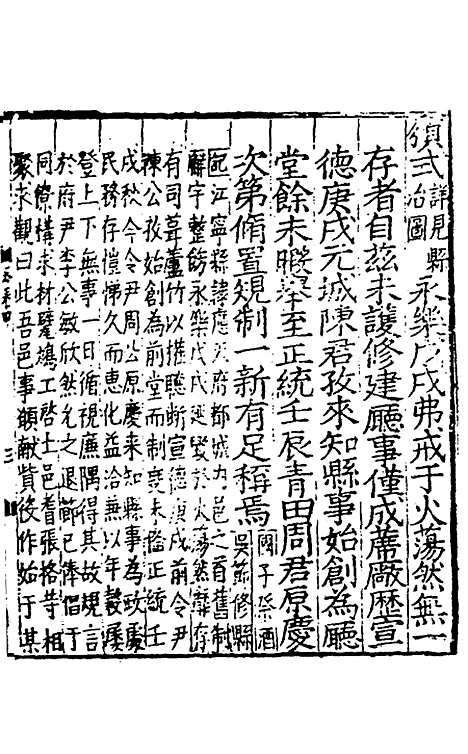 頒式詳見縣治圖永樂戊戌弗戒于火蕩然無一
存者自茲未護修建廳事僅成蓆廠歷宣
德庚戌元城陳君孜來知縣事始創為廳
堂餘未暇舉至正統壬辰青田周君原慶
次第脩置規制一新有足稱焉國子祭酒吳節修縣
記江寧縣隸應天府都城力邑之首舊制
廨宇整飭永樂戊戌延燬於火蕩然靡存
有司葺蘆竹以摧聽斷宣德庚戌前令尹
陳公孜始創為前堂而制度未備正統壬
戌秋今令尹周公原慶來知縣事為政慶
民務存愷悌久而惠化益洽兼以年穀屢
登上下無事一日循視廉隅得其故規言
於府尹李公敏欣然允之退節己俸倡于
同僚構求材甓鳩工啓土邑耆張格等相
聚來觀曰此吾邑事願獻貲後作始于某